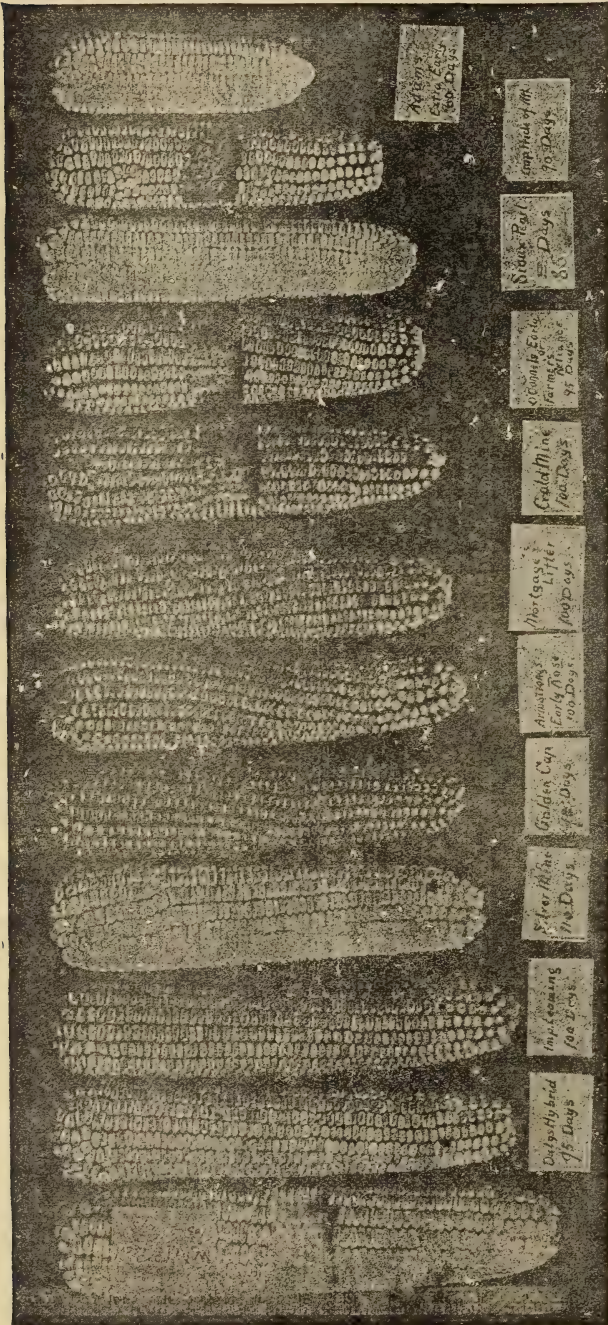 Adams
Early Early
60 Days
Imp. Pride of
90 Days
Sioux Pearl
85 Days
O'Connells Early
or
Farmers
Reliance
95 Days
Gold Mine
100 Days
Mortgage
Lifter
100 Days
Armstrong's
Early Rose
100 Days
Golden Cap
Days
Silver Mine
110 Days
Imp. Leaming
100 Days
Hybrid
Days